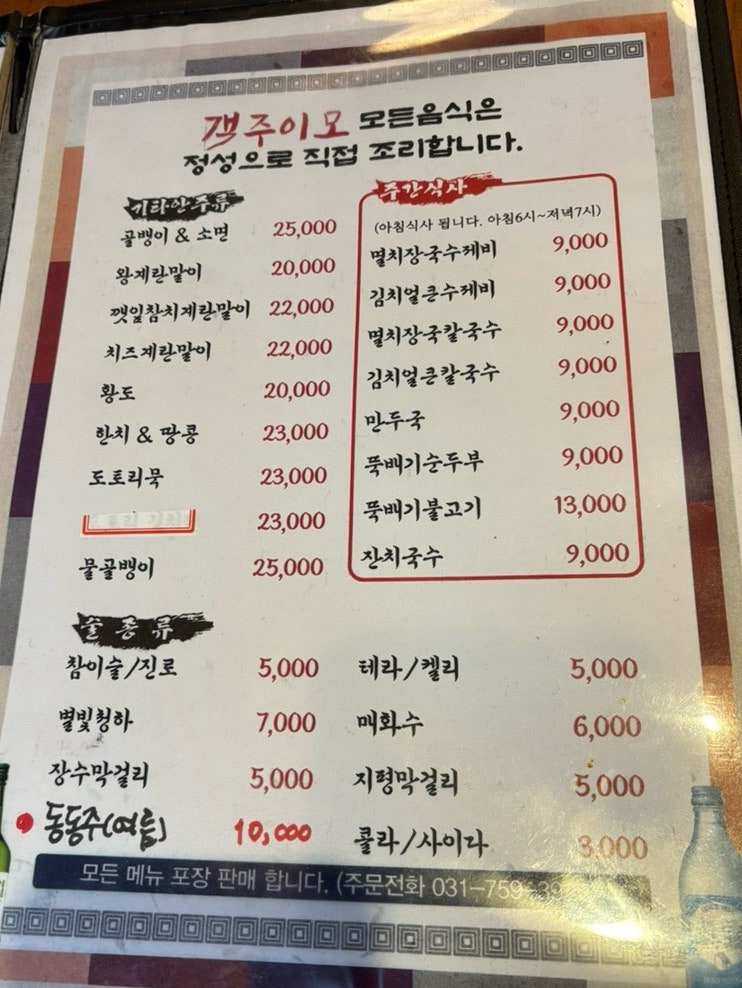 객주이모 모든음식은
정성으로 직접 조리합니다.
기타안주류
골뱅이 & 소면 25,000
왕계란말이 20,000
깻잎참치계란말이 22,000
치즈계란말이 22,000
황도 20,000
한치 & 땅콩 23,000
도토리묵 23,000
23,000
물골뱅이 25,000
주간식사
(아침식사 됩니다. 아침6시~저녁7시)
멸치장국수제비 9,000
김치얼큰수제비 9,000
멸치장국칼국수 9,000
김치얼큰칼국수 9,000
만두국 9,000
뚝배기순두부 9,000
뚝배기불고기 13,000
잔치국수 9,000
술 종 류
참이슬/진로 5,000
별빛청하 7,000
장수막걸리 5,000
동동주(여름) 10,000
테라/켈리 5,000
매화수 6,000
지평막걸리 5,000
콜라/사이다 3,000
모든 메뉴 포장 판매 합니다. (주문전화 031-759-